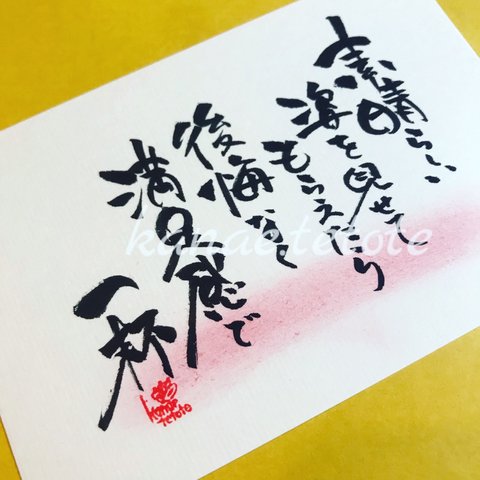 素晴らしい
姿を見せて
もらえたり
後悔なく
満足感で
一杯
kanae tetote
kanae
tetote